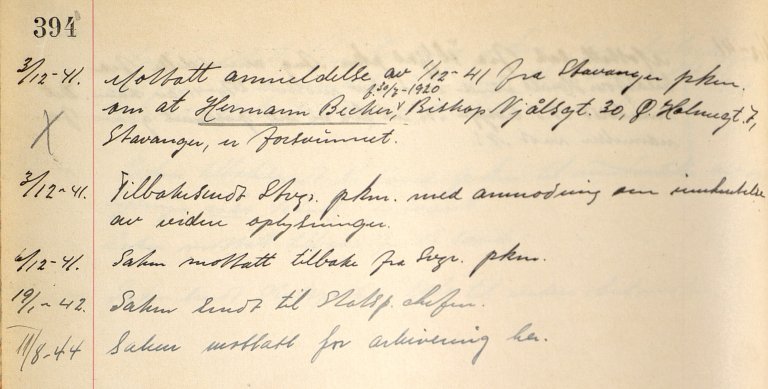 394
3/12-41. Mottatt anmeldelse av 1/12-41 fra Stavanger pkm.
f. 30/8-1920
om at Hermann Becker, Biskop Njålsgt. 30, Ø. Holmegt. 7,
X Stavanger, er forsvunnet.
3/12-41. Tilbakesendt Stvgr. pkm. med anmodning om innhentelse
av videre oplysninger.
6/12-41. Saken mottatt tilbake fra Svgr. pkm.
19/1-42. Saken sendt til Statsp. chefen.
11/8-44 Saken mottatt for arkivering her.